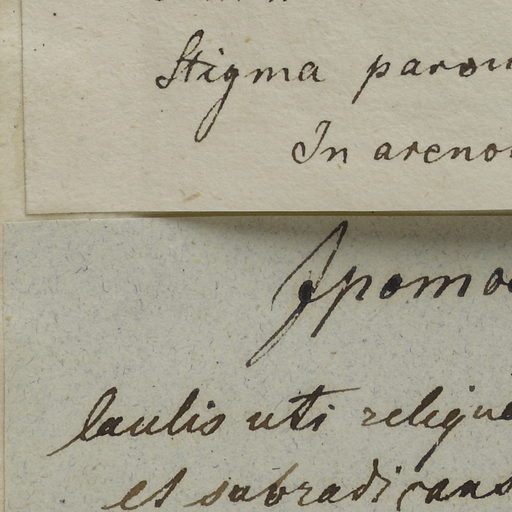 Stigma parou
In areno
Ipomo
Caulis uti reliqu
et subradicans